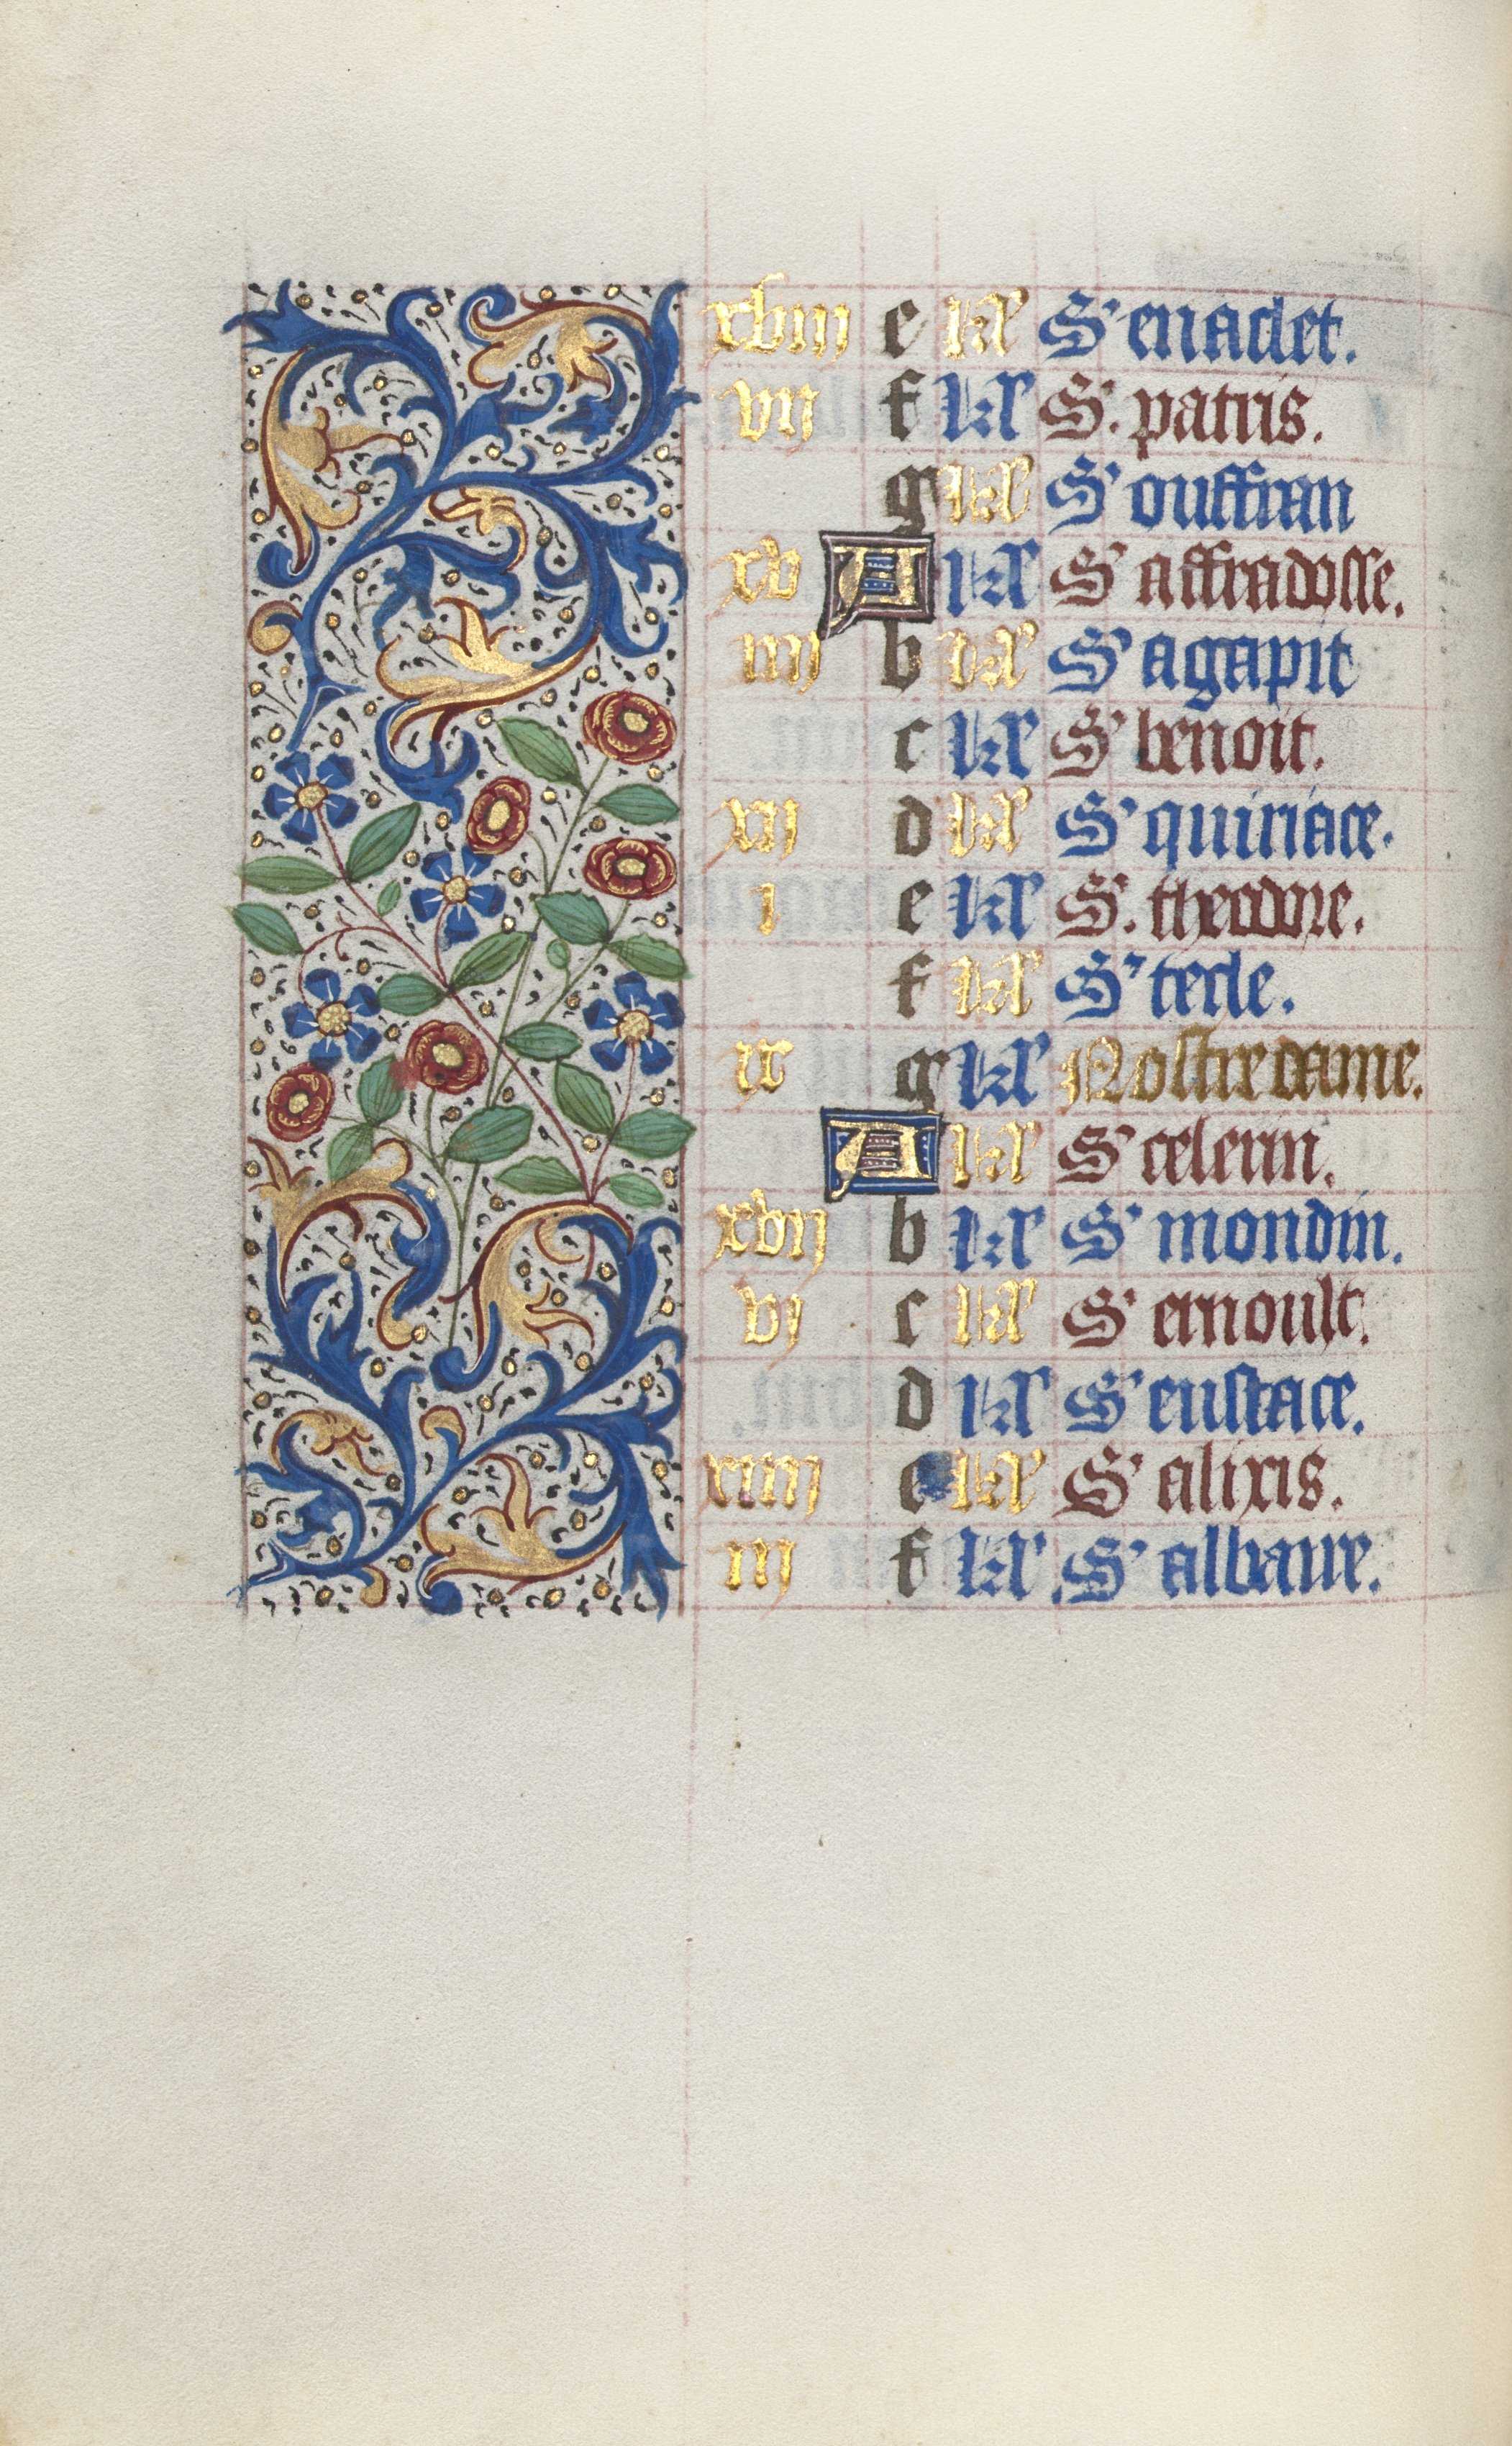 xviii e kl S' enaclet.
vii f kl S. patris.
g kl S' ouffran
xv A kl S' affradosse.
iiii b kl S' agapit
c kl S' benoit.
xii d kl S' quiriace.
i e kl S. theodore.
f kl S' tecle.
ix g kl Nostre dame.
A kl S' celerin.
xvii b kl S' mondin.
vi c kl S' ernoult.
d kl S' eustace.
xiiii e kl S' alixis.
iii f kl S' albane.